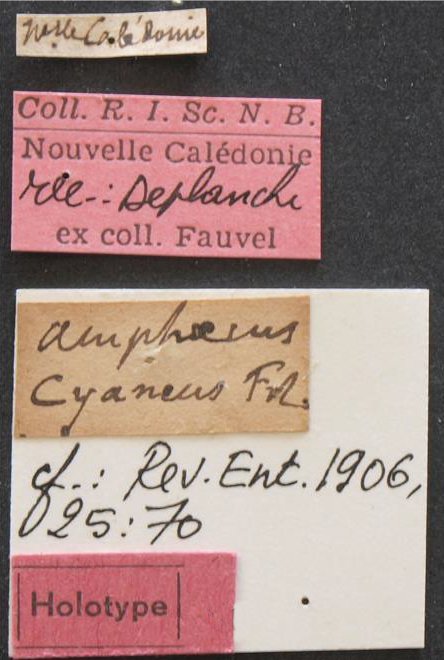 Nvlle Calédonie
Coll. R. I. Sc. N. B.
Nouvelle Calédonie
réc.: Deplanche
ex coll. Fauvel
amphœcus
Cyaneus Fvl.
cf.: Rev. Ent. 1906,
25:70
Holotype